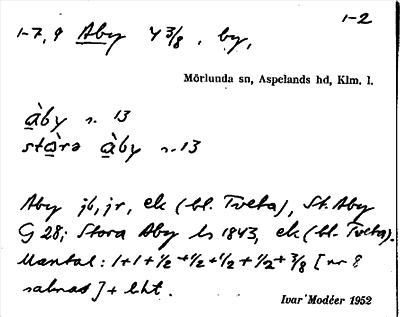 1-2
1-7, 9 Aby 4 3/8, by,
Mörlunda sn, Aspelands hd, Klm. l.
àby n. 13
stòra àby n. 13
Aby jb, jr, ek (bl. Tveta), St. Aby
G 28; Stora Aby ls 1843, ek (bl. Tveta).
Mantal: 1+1+1/2+1/2+1/2+1/2+3/8 [nr 8
saknas] + lht.
Ivar Modéer 1952